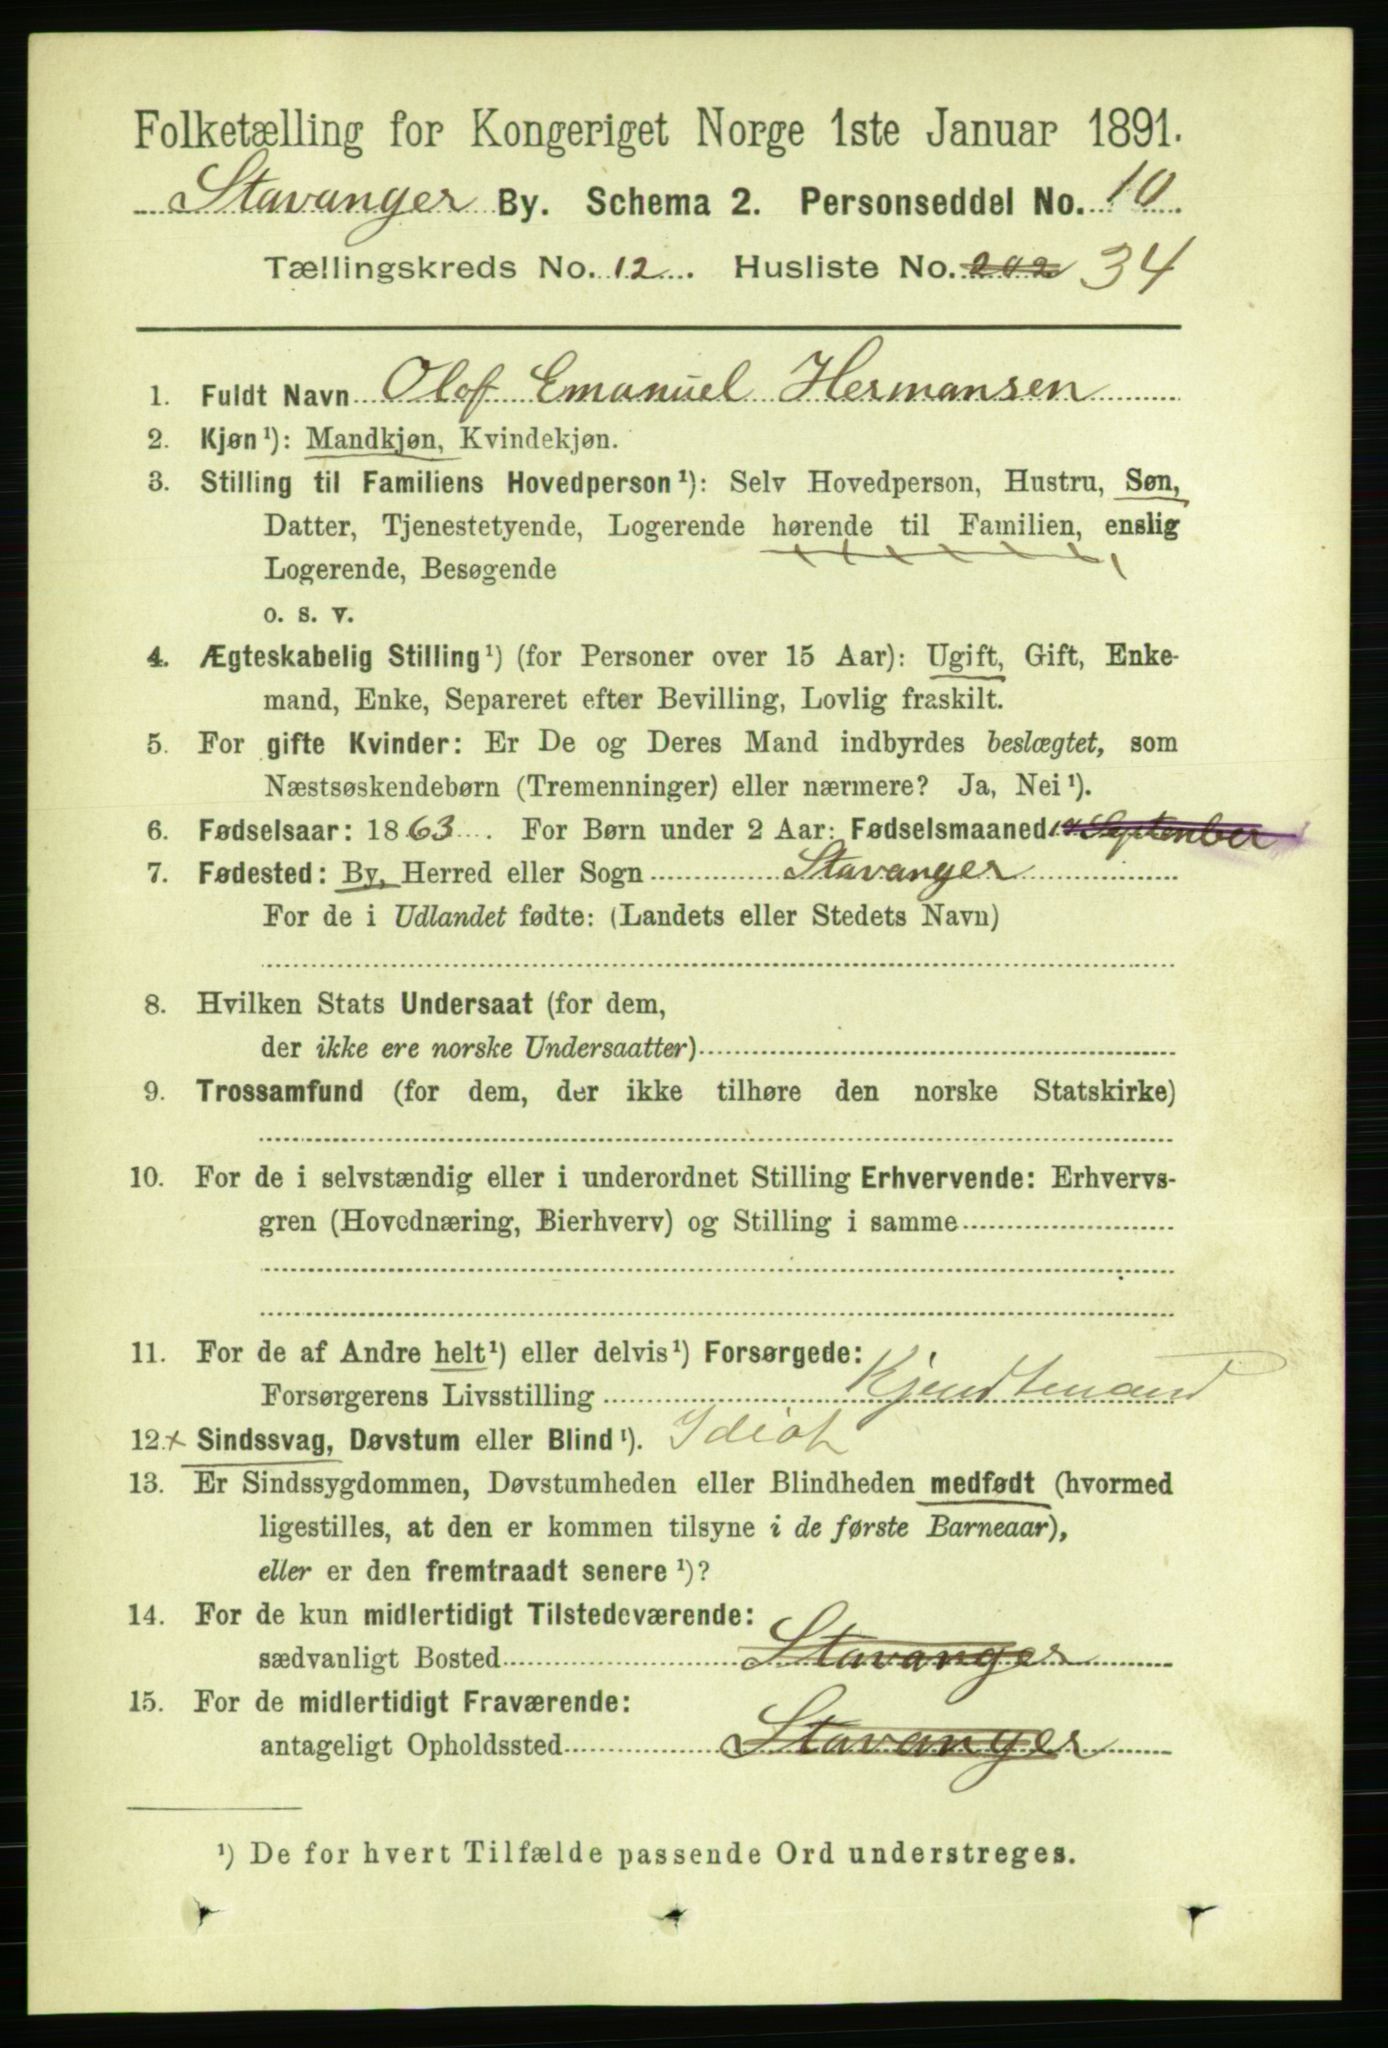 Folketælling for Kongeriget Norge 1ste Januar 1891.
Stavanger By. Schema 2. Personseddel No. 10
Tællingskreds No. 12. Husliste No. 202 34
1. Fuldt Navn Olof Emanuel Hermansen
2. Kjøn ¹): Mandkjøn, Kvindekjøn.
3. Stilling til Familiens Hovedperson ¹): Selv Hovedperson, Hustru, Søn,
Datter, Tjenestetyende, Logerende hørende til Familien, enslig
Logerende, Besøgende
o. s. v.
4. Ægteskabelig Stilling ¹) (for Personer over 15 Aar): Ugift, Gift, Enke-
mand, Enke, Separeret efter Bevilling, Lovlig fraskilt.
5. For gifte Kvinder: Er De og Deres Mand indbyrdes beslægtet, som
Næstsøskendebørn (Tremenninger) eller nærmere? Ja, Nei ¹).
6. Fødselsaar: 1863. For Børn under 2 Aar: Fødselsmaaned September
7. Fødested: By, Herred eller Sogn Stavanger
For de i Udlandet fødte: (Landets eller Stedets Navn)
8. Hvilken Stats Undersaat (for dem,
der ikke ere norske Undersaatter)
9. Trossamfund (for dem, der ikke tilhøre den norske Statskirke)
10. For de i selvstændig eller i underordnet Stilling Erhvervende: Erhvervs-
gren (Hovednæring, Bierhverv) og Stilling i samme
11. For de af Andre helt ¹) eller delvis ¹) Forsørgede:
Forsørgerens Livsstilling Kjendtmand
12. x Sindssvag, Døvstum eller Blind ¹). Idiot
13. Er Sindssygdommen, Døvstumheden eller Blindheden medfødt (hvormed
ligestilles, at den er kommen tilsyne i de første Barneaar),
eller er den fremtraadt senere ¹)?
14. For de kun midlertidigt Tilstedeværende:
sædvanligt Bosted Stavanger
15. For de midlertidigt Fraværende:
antageligt Opholdssted Stavanger
¹) De for hvert Tilfælde passende Ord understreges.